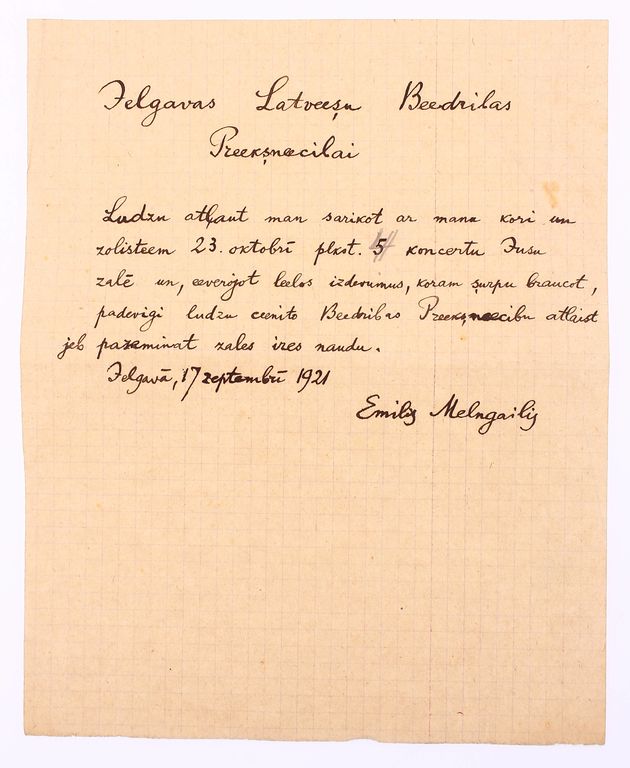 Jelgavas Latveešu Beedribas
Preekšneecibai
Ludzu atļaut man sarikot ar manu kori un
zolisteem 23. oktobrī plkst. 5 koncertu Jusu
zalē un, eeverojot leelos izdevumus, koram šurpu braucot,
padevigi ludzu ceenito Beedribas Preekšneecibu atlaist
jeb pazeminat zales ires naudu.
Jelgavā, 17 zeptembrī 1921
Emilis Melngailis